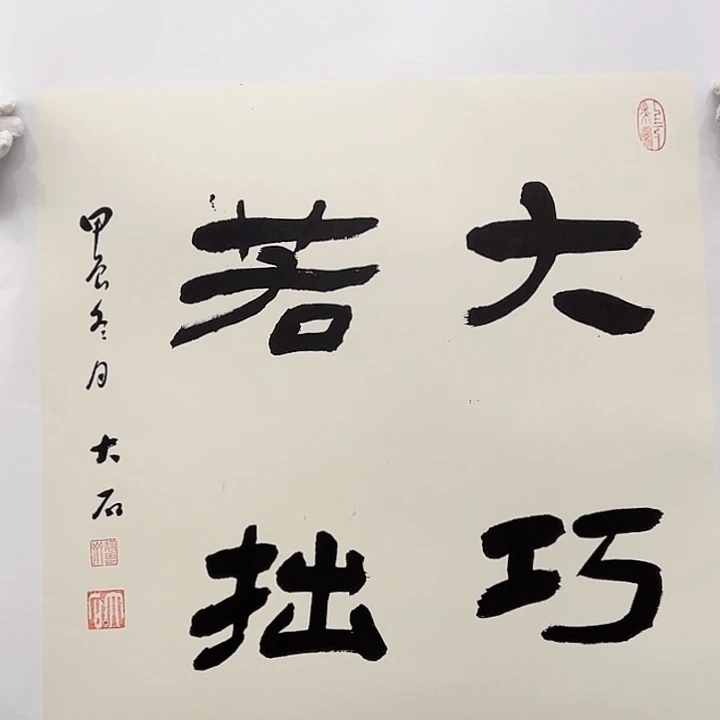 大巧
若拙
甲辰冬月 大石